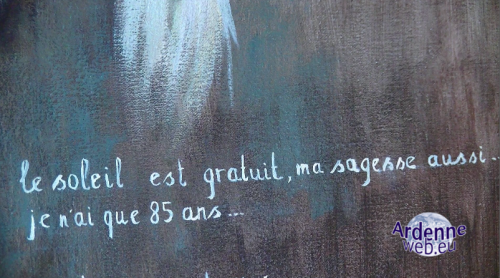 le soleil est gratuit, ma sagesse aussi..
je n'ai que 85 ans...
Ardenne
web.eu